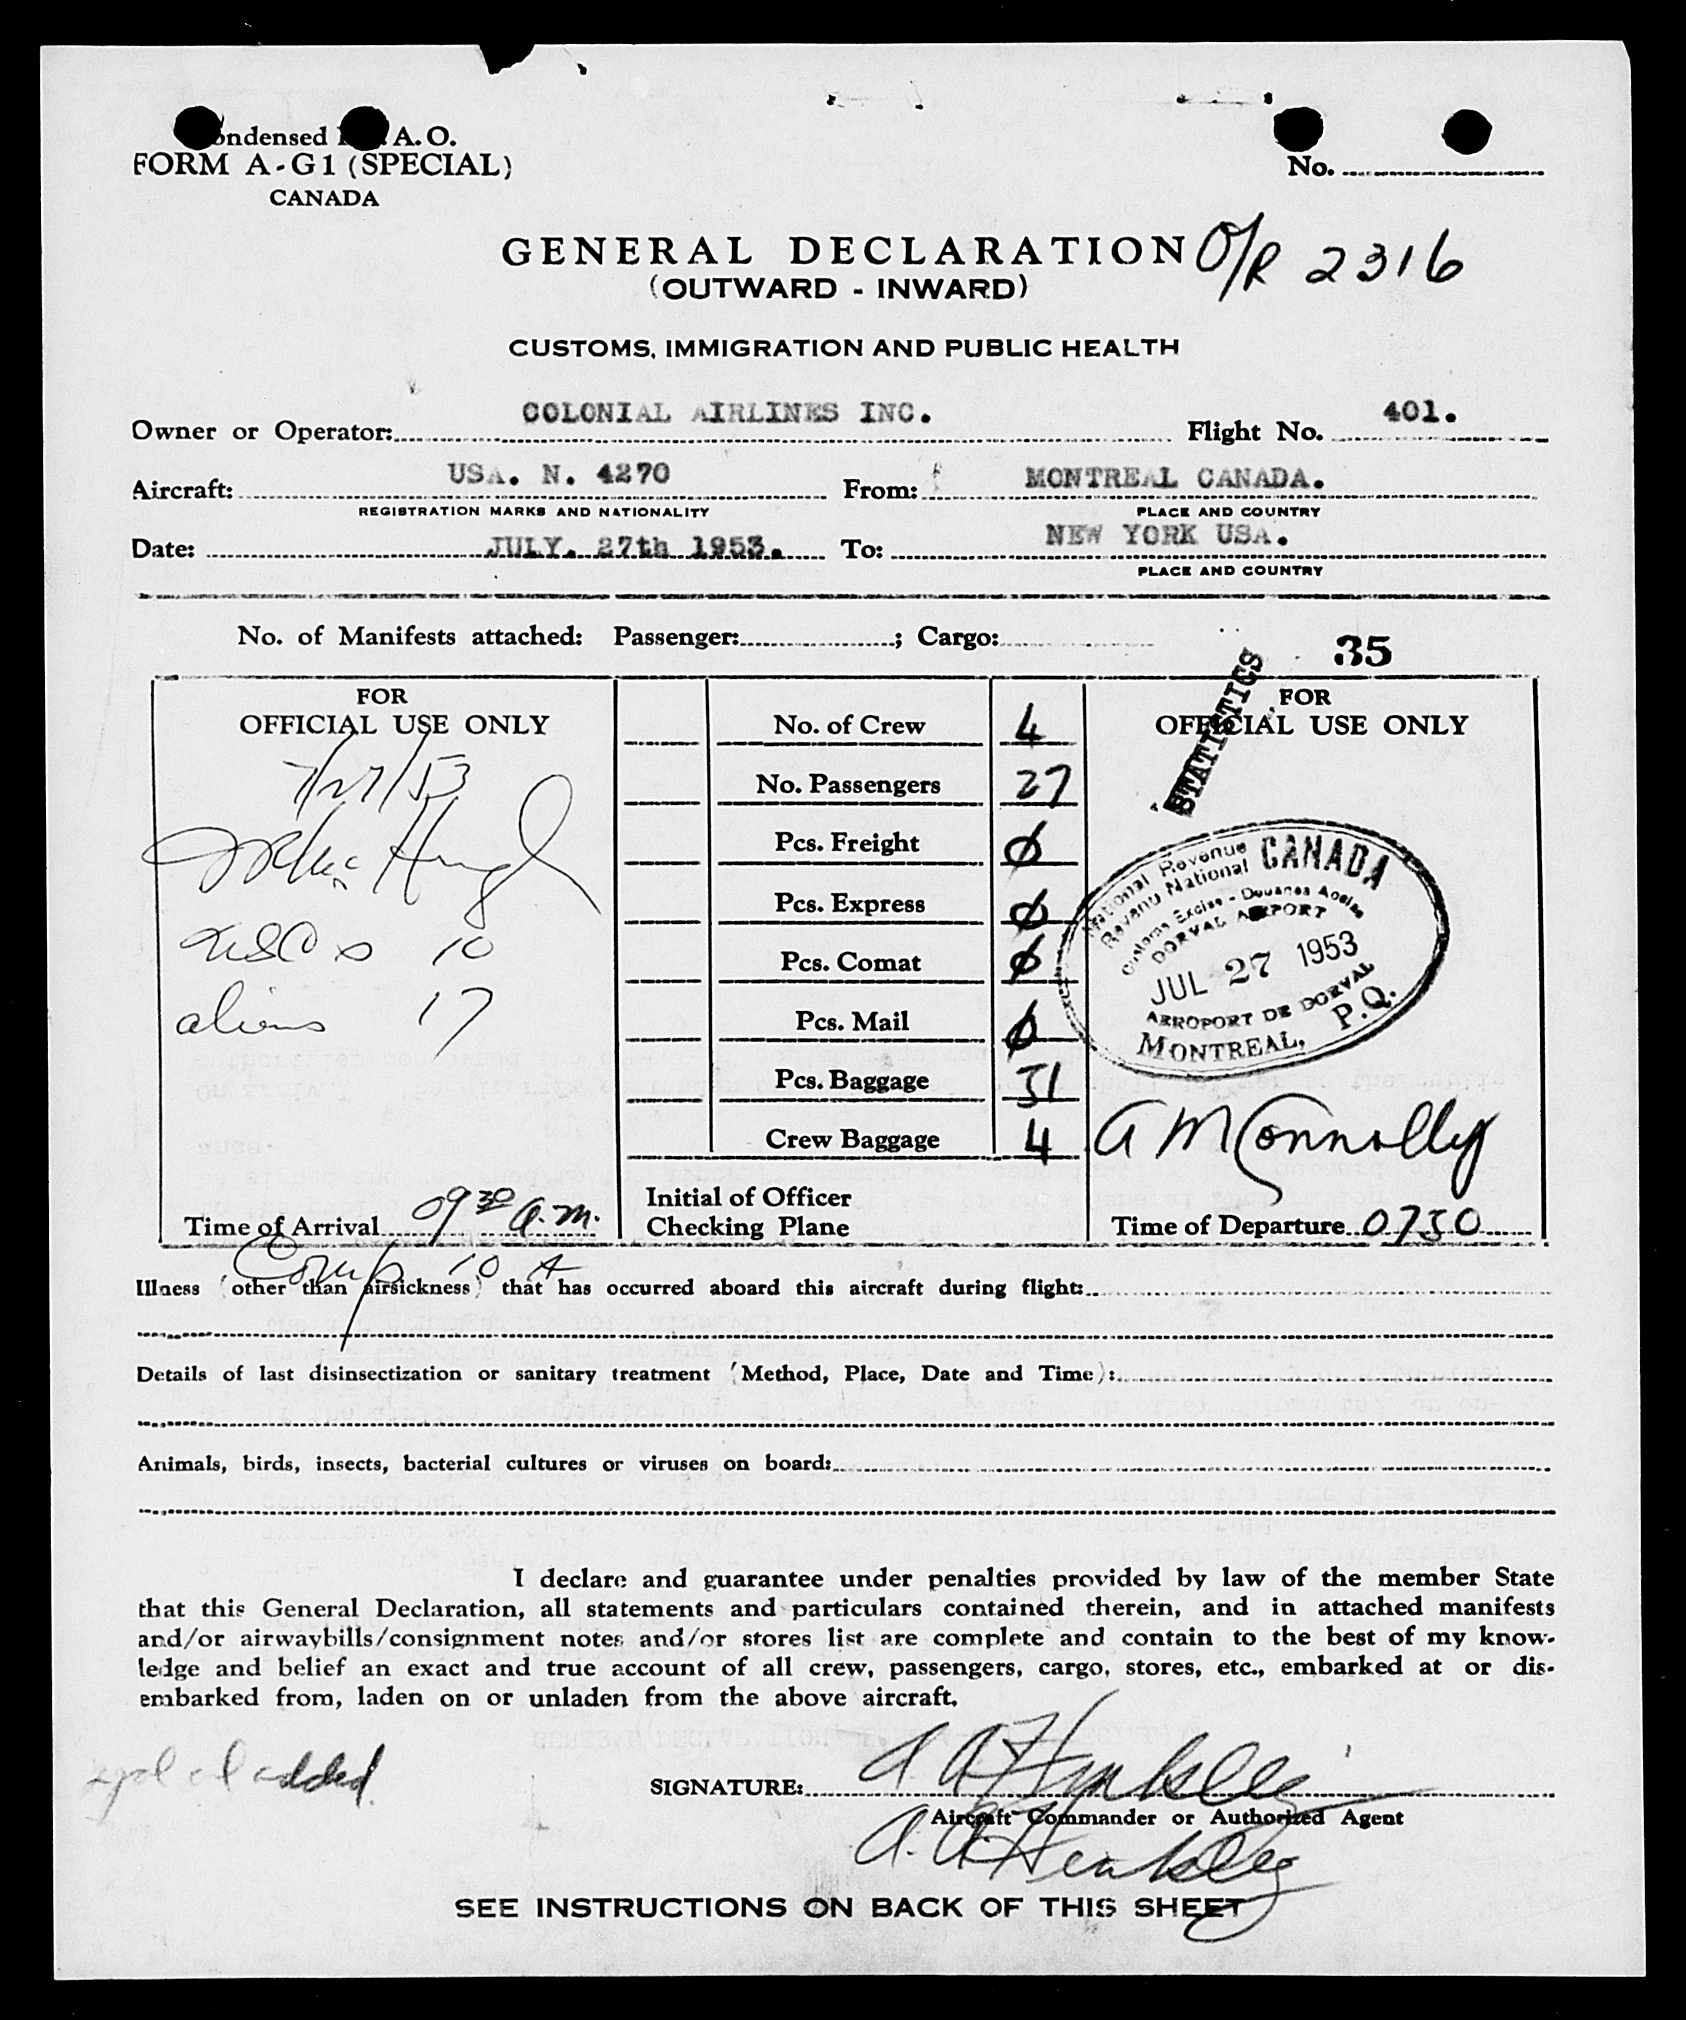 Condensed I.C.A.O.
FORM A-G1 (SPECIAL)
CANADA
No.
GENERAL DECLARATION
O/R 2316
(OUTWARD - INWARD)
CUSTOMS, IMMIGRATION AND PUBLIC HEALTH
Owner or Operator: COLONIAL AIRLINES INC. Flight No. 401.
Aircraft: USA. N. 4270 From: MONTREAL CANADA.
REGISTRATION MARKS AND NATIONALITY PLACE AND COUNTRY
Date: JULY. 27th 1953. To: NEW YORK USA.
PLACE AND COUNTRY
No. of Manifests attached: Passenger: ; Cargo:
35
STATISTICS
FOR
OFFICIAL USE ONLY
7/27/53
USC 10
aliens 17
Time of Arrival 09 30 a.m.
Comp 10 A
No. of Crew 4
No. Passengers 27
Pcs. Freight 0
Pcs. Express 0
Pcs. Comat 0
Pcs. Mail 0
Pcs. Baggage 31
Crew Baggage 4
Initial of Officer
Checking Plane
FOR
OFFICIAL USE ONLY
National Revenue CANADA
Revenu National
Customs Excise - Douanes Accise
DORVAL AIRPORT
JUL 27 1953
AEROPORT DE DORVAL
MONTREAL, P.Q.
A McConnolly
Time of Departure 0730
Illness (other than airsickness) that has occurred aboard this aircraft during flight:
Details of last disinsectization or sanitary treatment (Method, Place, Date and Time):
Animals, birds, insects, bacterial cultures or viruses on board:
I declare and guarantee under penalties provided by law of the member State
that this General Declaration, all statements and particulars contained therein, and in attached manifests
and/or airwaybills/consignment notes and/or stores list are complete and contain to the best of my know-
ledge and belief an exact and true account of all crew, passengers, cargo, stores, etc., embarked at or dis-
embarked from, laden on or unladen from the above aircraft.
added.
SIGNATURE: A A Hinksley
Aircraft Commander or Authorized Agent
A. A. Hinksley
SEE INSTRUCTIONS ON BACK OF THIS SHEET